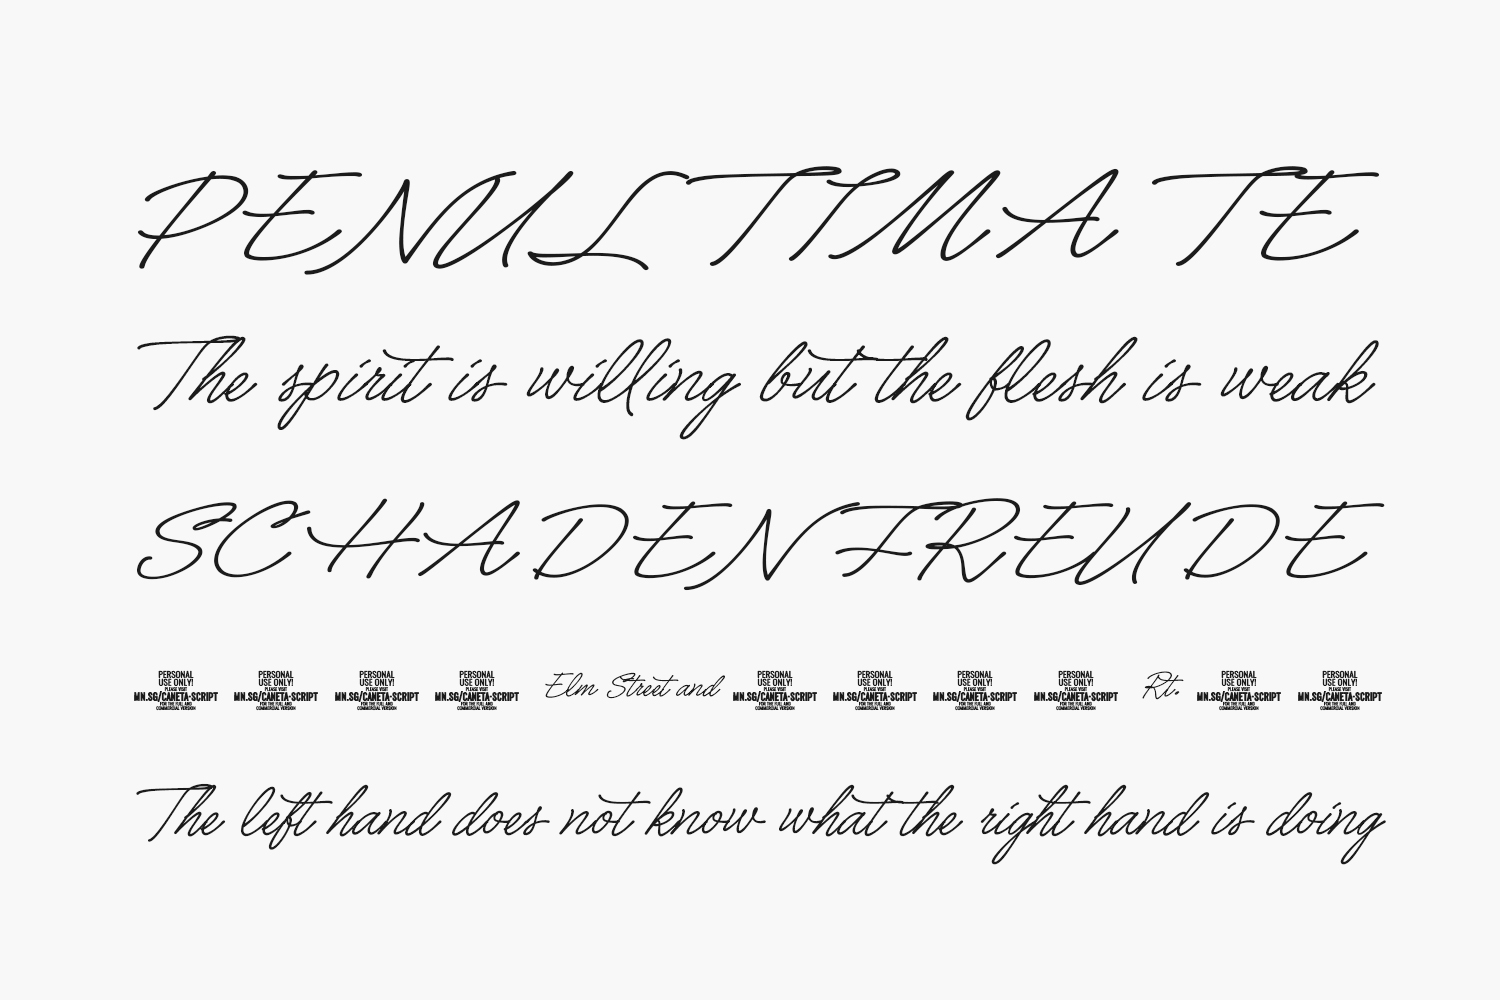 PENULTIMATE
The spirit is willing but the flesh is weak
SCHADENFREUDE
PERSONAL USE ONLY! PLEASE VISIT MN.SG/CANETA-SCRIPT FOR THE FULL AND COMMERCIAL VERSION PERSONAL USE ONLY! PLEASE VISIT MN.SG/CANETA-SCRIPT FOR THE FULL AND COMMERCIAL VERSION PERSONAL USE ONLY! PLEASE VISIT MN.SG/CANETA-SCRIPT FOR THE FULL AND COMMERCIAL VERSION PERSONAL USE ONLY! PLEASE VISIT MN.SG/CANETA-SCRIPT FOR THE FULL AND COMMERCIAL VERSION Elm Street and PERSONAL USE ONLY! PLEASE VISIT MN.SG/CANETA-SCRIPT FOR THE FULL AND COMMERCIAL VERSION PERSONAL USE ONLY! PLEASE VISIT MN.SG/CANETA-SCRIPT FOR THE FULL AND COMMERCIAL VERSION PERSONAL USE ONLY! PLEASE VISIT MN.SG/CANETA-SCRIPT FOR THE FULL AND COMMERCIAL VERSION PERSONAL USE ONLY! PLEASE VISIT MN.SG/CANETA-SCRIPT FOR THE FULL AND COMMERCIAL VERSION Rt. PERSONAL USE ONLY! PLEASE VISIT MN.SG/CANETA-SCRIPT FOR THE FULL AND COMMERCIAL VERSION PERSONAL USE ONLY! PLEASE VISIT MN.SG/CANETA-SCRIPT FOR THE FULL AND COMMERCIAL VERSION
The left hand does not know what the right hand is doing